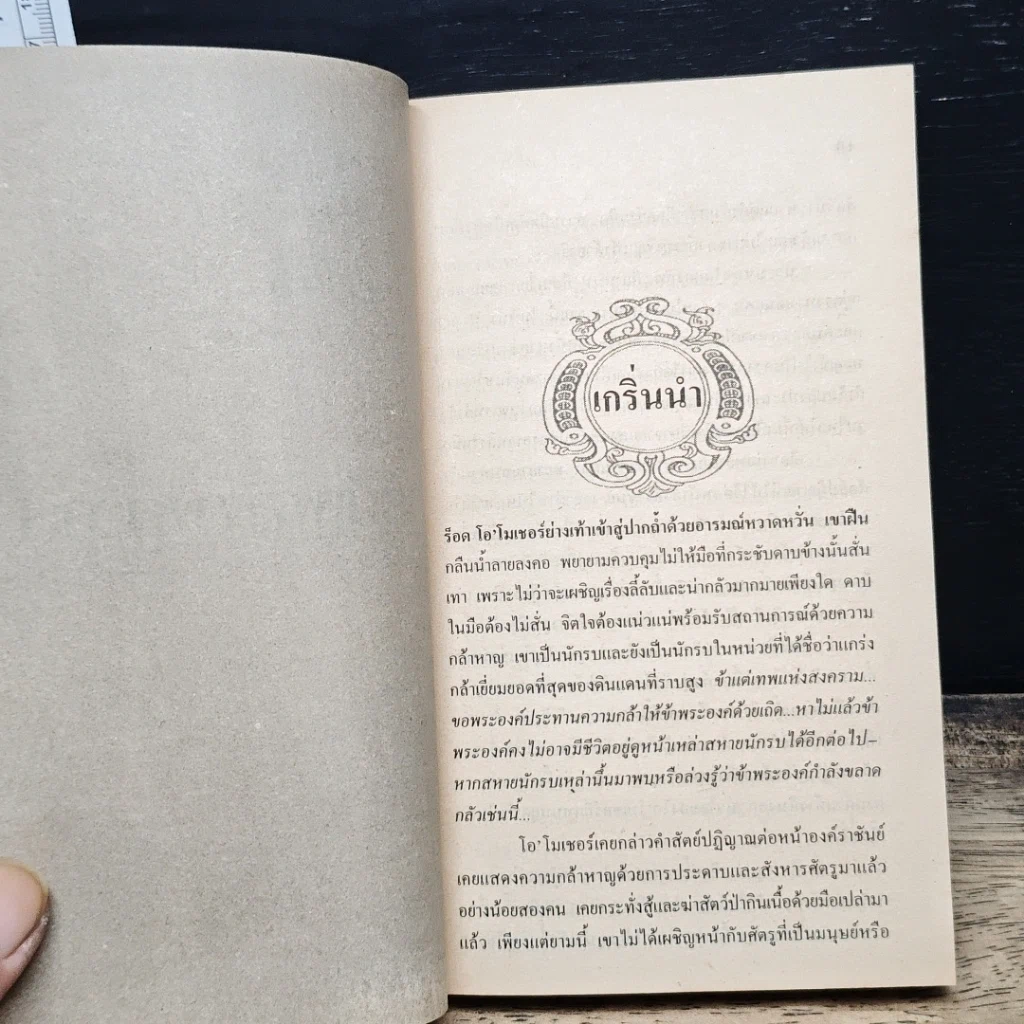 เกริ่นนำ
ร็อด โอ'โมเชอร์ย่างเท้าเข้าสู่ปากถ้ำด้วยอารมณ์หวาดหวั่น เขาฝืน
กลืนน้ำลายลงคอ พยายามควบคุมไม่ให้มือที่กระชับดาบข้างนั้นสั่น
เทา เพราะไม่ว่าจะเผชิญเรื่องลี้ลับและน่ากลัวมากมายเพียงใด ดาบ
ในมือต้องไม่สั่น จิตใจต้องแน่วแน่พร้อมรับสถานการณ์ด้วยความ
กล้าหาญ เขาเป็นนักรบและยังเป็นนักรบในหน่วยที่ได้ชื่อว่าแกร่ง
กล้าเยี่ยมยอดที่สุดของดินแดนที่ราบสูง ข้าแต่เทพแห่งสงคราม...
ขอพระองค์ประทานความกล้าให้ข้าพระองค์ด้วยเถิด...หาไม่แล้วข้า
พระองค์คงไม่อาจมีชีวิตอยู่ดูหน้าเหล่าสหายนักรบได้อีกต่อไป-
หากสหายนักรบเหล่านั้นมาพบหรือล่วงรู้ว่าข้าพระองค์กำลังขลาด
กลัวเช่นนี้...
โอ'โมเชอร์เคยกล่าวคำสัตย์ปฏิญาณต่อหน้าองค์ราชันย์
เคยแสดงความกล้าหาญด้วยการประดาบและสังหารศัตรูมาแล้ว
อย่างน้อยสองคน เคยกระทั่งสู้และฆ่าสัตว์ป่ากินเนื้อด้วยมือเปล่ามา
แล้ว เพียงแต่ยามนี้ เขาไม่ได้เผชิญหน้ากับศัตรูที่เป็นมนุษย์หรือ